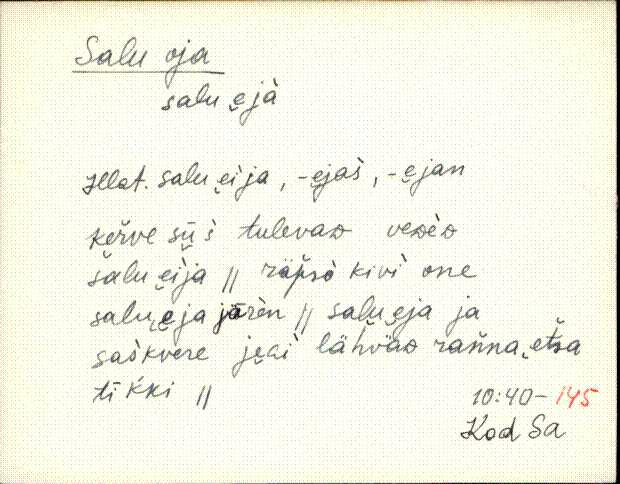 Salu oja
salu e̮jà
Illat. salu e̮ìja, -e̮jaś, -e̮jan
ke̮rve sūś tulevaᴅ veᴅèᴅ
salu e̮ìja // räṕsò kivì one
salu e̮ja jǟrèn // salu e̮ja ja
saśkvere je̮ɢì lähväᴅ rańna e̮tsa
tiḱḱi //
10:40-145
Kod Sa